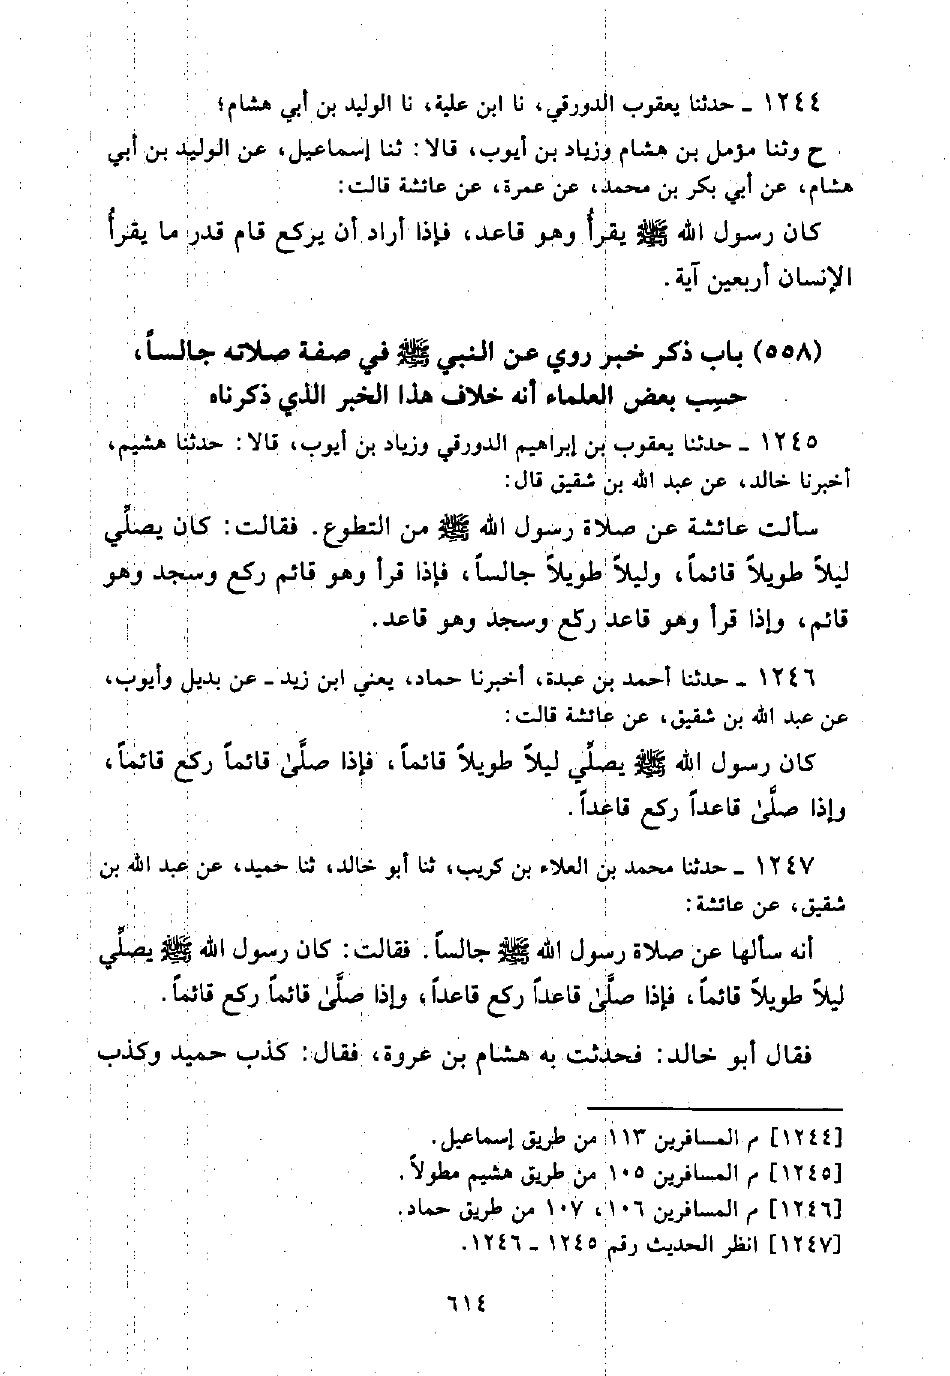 ١٢٤٤ ـ حدثنا يعقوب الدورقي، نا ابن علية، نا الوليد بن أبي هشام؛
ح وثنا مؤمل بن هشام وزياد بن أيوب، قالا: ثنا إسماعيل، عن الوليد بن أبي
هشام، عن أبي بكر بن محمد، عن عمرة، عن عائشة قالت:
كان رسول الله ﷺ يقرأُ وهو قاعد، فإذا أراد أن يركع قام قدر ما يقرأُ
الإنسان أربعين آية.
(٥٥٨) باب ذكر خبر روي عن النبي ﷺ في صفة صلاته جالساً،
حسِب بعض العلماء أنه خلاف هذا الخبر الذي ذكرناه
١٢٤٥ ـ حدثنا يعقوب بن إبراهيم الدورقي وزياد بن أيوب، قالا: حدثنا هشيم،
أخبرنا خالد، عن عبد الله بن شقيق قال:
سألت عائشة عن صلاة رسول الله ﷺ من التطوع. فقالت: كان يصلّي
ليلاً طويلاً قائماً، وليلاً طويلاً جالساً، فإذا قرأ وهو قائم ركع وسجد وهو
قائم، وإذا قرأ وهو قاعد ركع وسجد وهو قاعد.
١٢٤٦ ـ حدثنا أحمد بن عبدة، أخبرنا حماد، يعني ابن زيد ـ عن بديل وأيوب،
عن عبد الله بن شقيق، عن عائشة قالت:
كان رسول الله ﷺ يصلّي ليلاً طويلاً قائماً، فإذا صلَّىٰ قائماً ركع قائماً،
وإذا صلَّىٰ قاعداً ركع قاعداً.
١٢٤٧ ـ حدثنا محمد بن العلاء بن كريب، ثنا أبو خالد، ثنا حميد، عن عبد الله بن
شقيق، عن عائشة:
أنه سألها عن صلاة رسول الله ﷺ جالساً. فقالت: كان رسول الله ﷺ يصلّي
ليلاً طويلاً قائماً، فإذا صلَّىٰ قاعداً ركع قاعداً، وإذا صلَّىٰ قائماً ركع قائماً.
فقال أبو خالد: فحدثت به هشام بن عروة، فقال: كذب حميد وكذب
[١٢٤٤] م المسافرين ١١٣ من طريق إسماعيل.
[١٢٤٥] م المسافرين ١٠٥ من طريق هشيم مطولاً.
[١٢٤٦] م المسافرين ١٠٦، ١٠٧ من طريق حماد.
[١٢٤٧] انظر الحديث رقم ١٢٤٥ ـ ١٢٤٦.
٦١٤